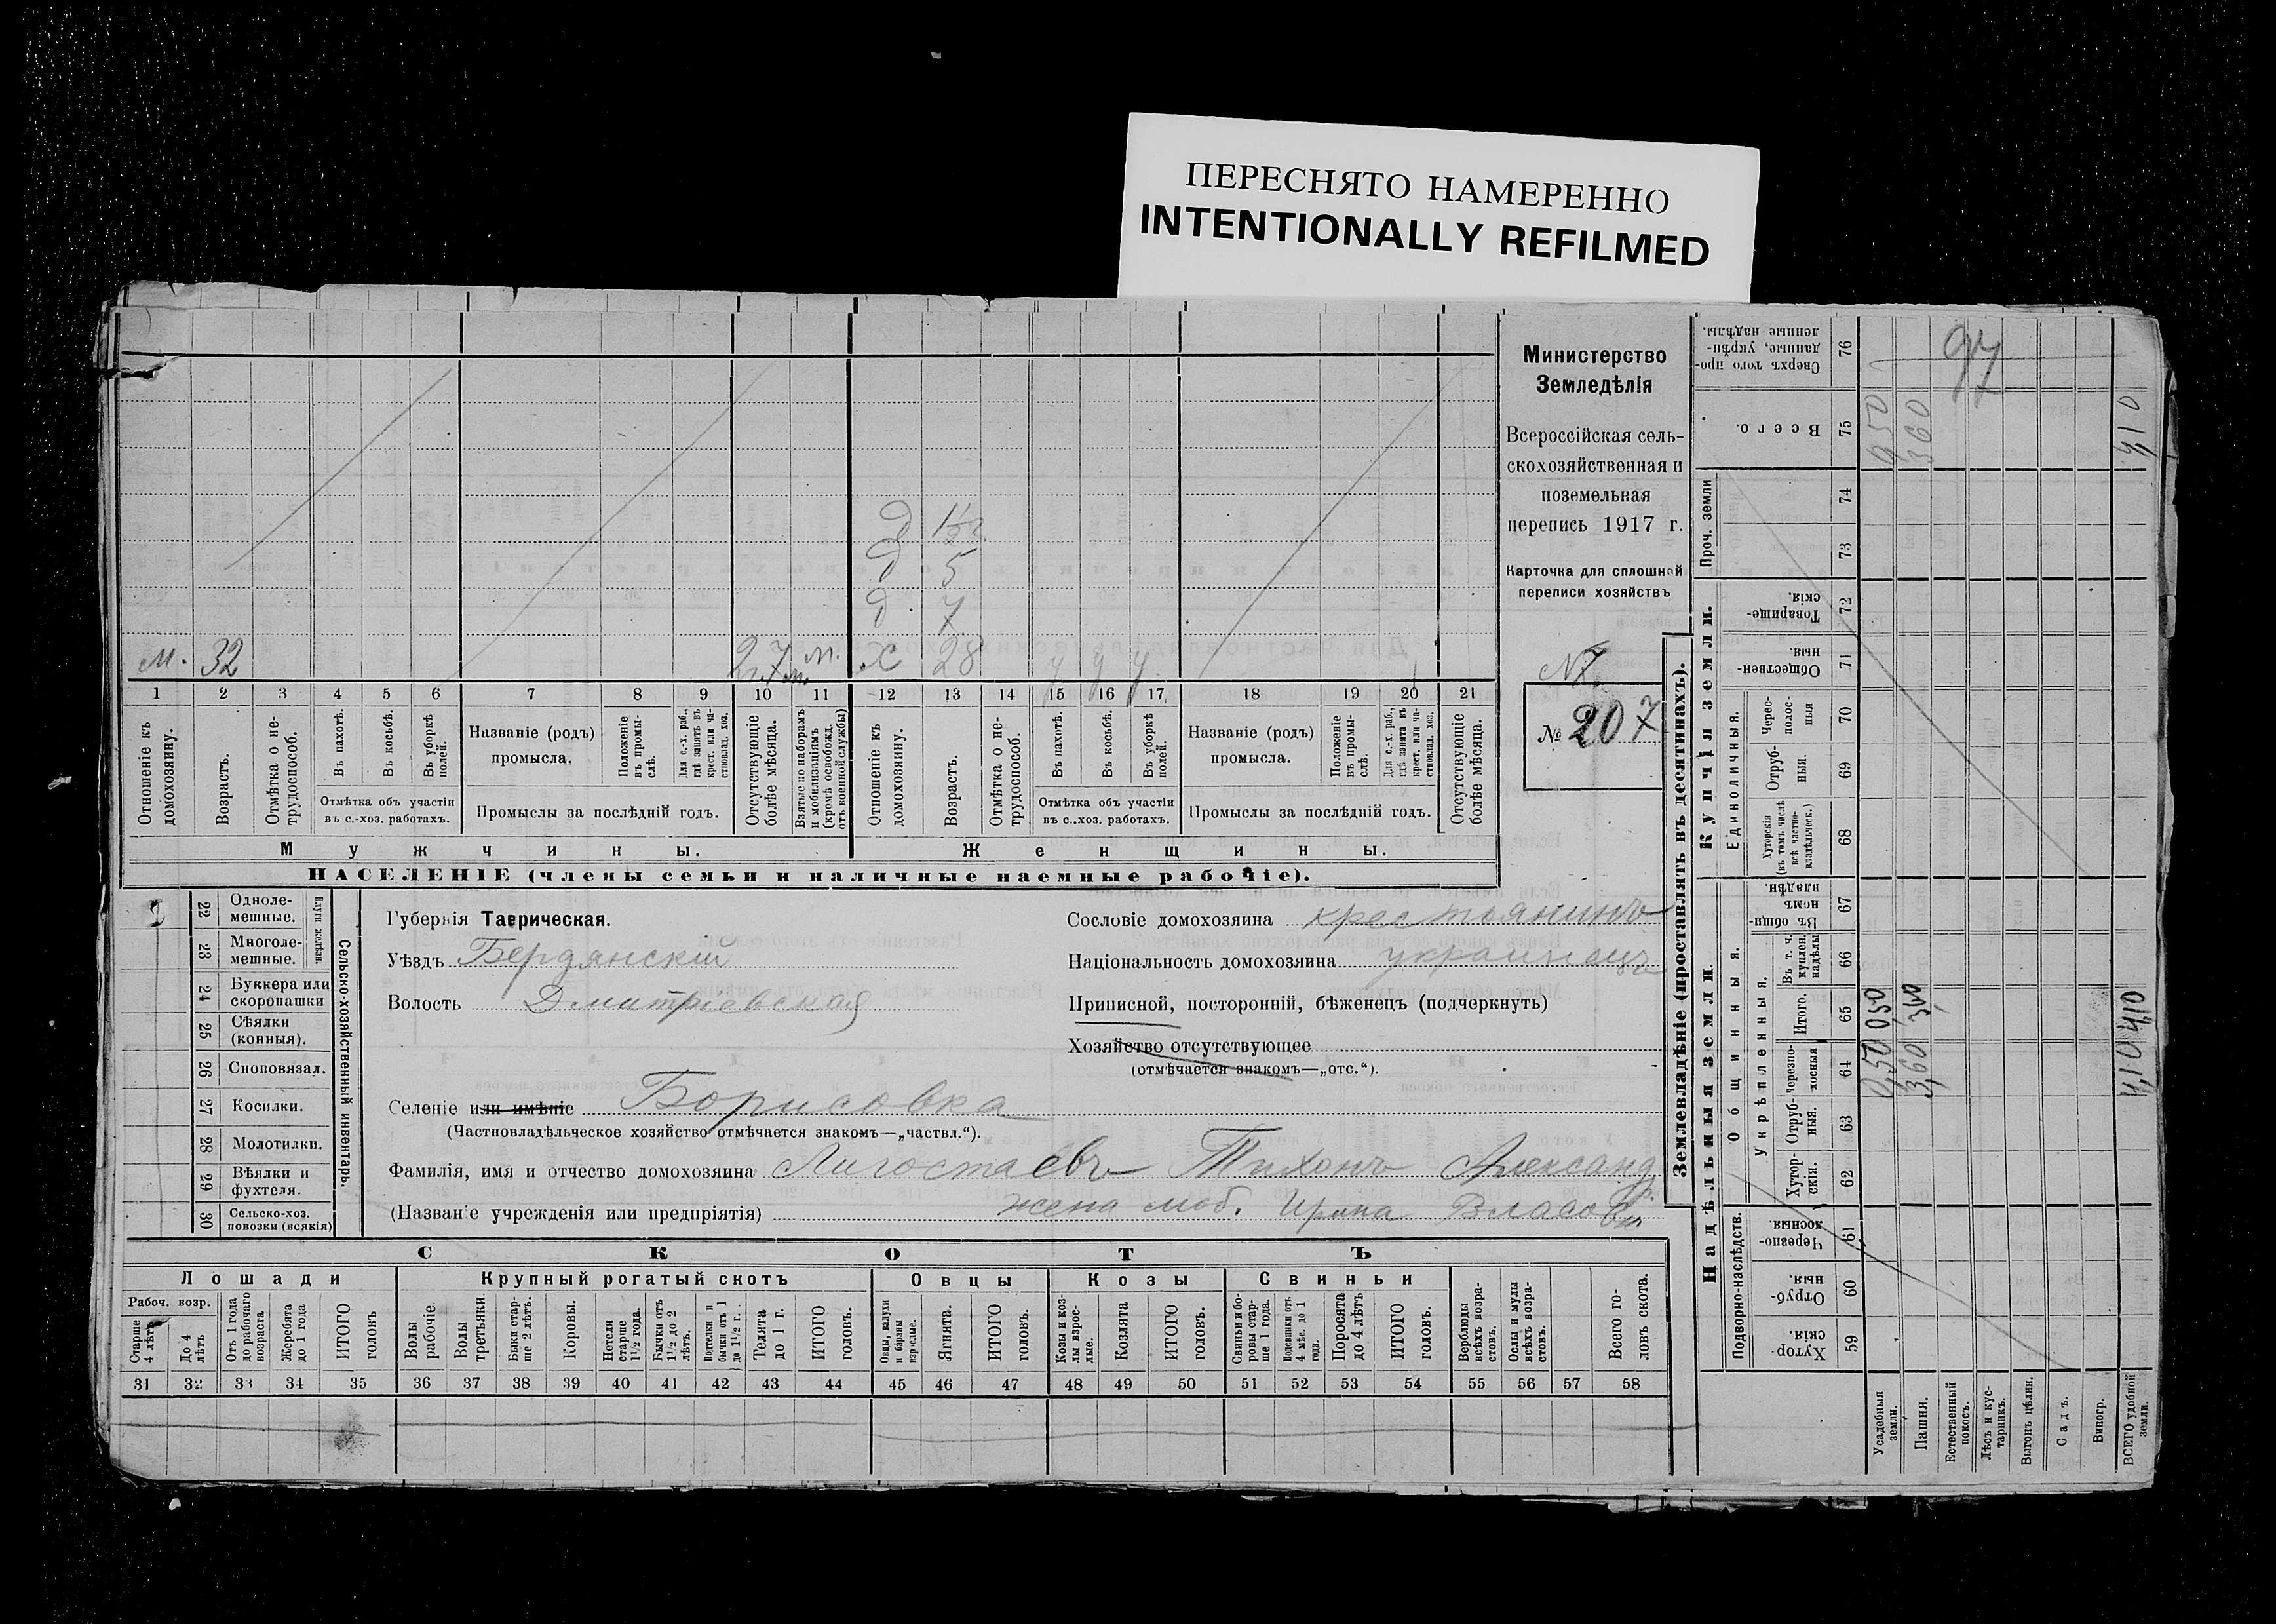 ПЕРЕСНЯТО НАМЕРЕННО
INTENTIONALLY REFILMED
Министерство
Земледѣлія
Всероссійская сель-
скохозяйственная и
поземельная
перепись 1917 г.
Карточка для сплошной
переписи хозяйствъ
№ 207
д 1½
д 5
д. 7
м. 32
х 28
1 2 3 4 5 6 7 8 9 10 11 12 13 14 15 16 17 18 19 20 21
Отношеніе къ домохозяину.
Возрастъ.
Отмѣтка о не-трудоспособ.
Въ пахотѣ.
Въ косьбѣ.
Въ уборкѣ полей.
Отмѣтка объ участіи
въ с.-хоз. работахъ.
Названіе (родъ)
промысла.
Положеніе въ промы-слѣ.
Для с.-х. раб., гдѣ занятъ въ крест. или ча-стновлад. хоз.
Промыслы за послѣдній годъ.
Отсутствующіе болѣе мѣсяца.
Взятые по наборамъ и мобилизаціямъ (кромѣ освобожд. отъ военной службы)
Отношеніе къ домохозяину.
Возрастъ.
Отмѣтка о не-трудоспособ.
Въ пахотѣ.
Въ косьбѣ.
Въ уборкѣ полей.
Отмѣтка объ участіи
въ с..хоз. работахъ.
Названіе (родъ)
промысла.
Положеніе въ промы-слѣ.
Для с.-х. раб., гдѣ занята въ крест. или ча-стновлад. хоз.
Промыслы за послѣдній годъ.
Отсутствующіе болѣе мѣсяца.
Мужчины. Женщины.
НАСЕЛЕНІЕ (члены семьи и наличные наемные рабочіе).
22 Одноле-мешные.
23 Многоле-мешные.
Плуги желѣзн.
24 Буккера или скоропашки
25 Сѣялки (конныя).
26 Сноповязал.
27 Косилки.
28 Молотилки.
29 Вѣялки и фухтеля.
30 Сельско-хоз. повозки (всякія)
Сельско-хозяйственный инвентарь.
Губернія Таврическая.
Уѣздъ Бердянскій
Волость Дмитріевская
Сословіе домохозяина крестьянинъ
Національность домохозяина украинецъ
Приписной, посторонній, бѣженецъ (подчеркнуть)
Хозяйство отсутствующее
(отмѣчается знакомъ—„отс.“).
Селеніе или имѣніе Борисовка
(Частновладѣльческое хозяйство отмѣчается знакомъ—„частвл.“).
Фамилія, имя и отчество домохозяина Лигостаевъ Тихонъ Александр.
(Названіе учрежденія или предпріятія) жена моб. Ирина Власовн
СКОТЪ
Лошади Крупный рогатый скотъ Овцы Козы Свиньи
Рабоч. возр.
Старше 4 лѣтъ
До 4 лѣтъ
Отъ 1 года до рабочаго возраста
Жеребята до 1 года
ИТОГО головъ
Волы рабочіе.
Волы третьяки.
Быки стар-ше 2 лѣтъ.
Коровы.
Нетели старше 1½ года.
Бычки отъ 1½ до 2 лѣтъ.
Подтелки и бычки отъ 1 до 1½ г.
Телята до 1 г.
ИТОГО головъ.
Овцы, валухи и бараны взрослые.
Ягнята.
ИТОГО головъ.
Козы и коз-лы взрос-лые.
Козлята
ИТОГО головъ.
Свиньи и бо-ровы стар-ше 1 года.
Подсвинки отъ 4 мѣс. до 1 года.
Поросята до 4 лѣтъ
ИТОГО головъ.
Верблюды всѣхъ возра-стовъ.
Ослы и мулы всѣхъ возра-стовъ.
Всего го-ловъ скота.
31 32 33 34 35 36 37 38 39 40 41 42 43 44 45 46 47 48 49 50 51 52 53 54 55 56 57 58
Землевладѣніе (проставлять въ десятинахъ).
Надѣльныя земли. Купчія земли.
Подворно-наслѣдств.
Общинныя.
Укрѣпленныя.
Единоличныя.
Проч. земли
Хутор-скія. 59
Отруб-ныя. 60
Черезпо-лосныя. 61
Хутор-скія. 62
Отруб-ныя. 63
Черезпо-лосныя 64
Итого. 65
Въ т. ч. куплен. надѣлы 66
Въ общи-номъ владѣн. 67
Хуторскія (въ томъ числѣ всѣ частно-владѣльческ.) 68
Отруб-ныя. 69
Черес-полос-ныя 70
Обществен-ныя. 71
Товарище-скія. 72
73
74
Всего. 75
Сверхъ того про-данные, укрѣп-ленные надѣлы. 76
Усадебныя земли. 0,50 0,50 0,50
Пашня. 3,60 3,60 3,60
Естественный покосъ.
Лѣсъ и кус-тарникъ.
Выгонъ цѣлин.
Садъ.
Виногр.
ВСЕГО удобной земли. 4,10 4,10 4,10
97